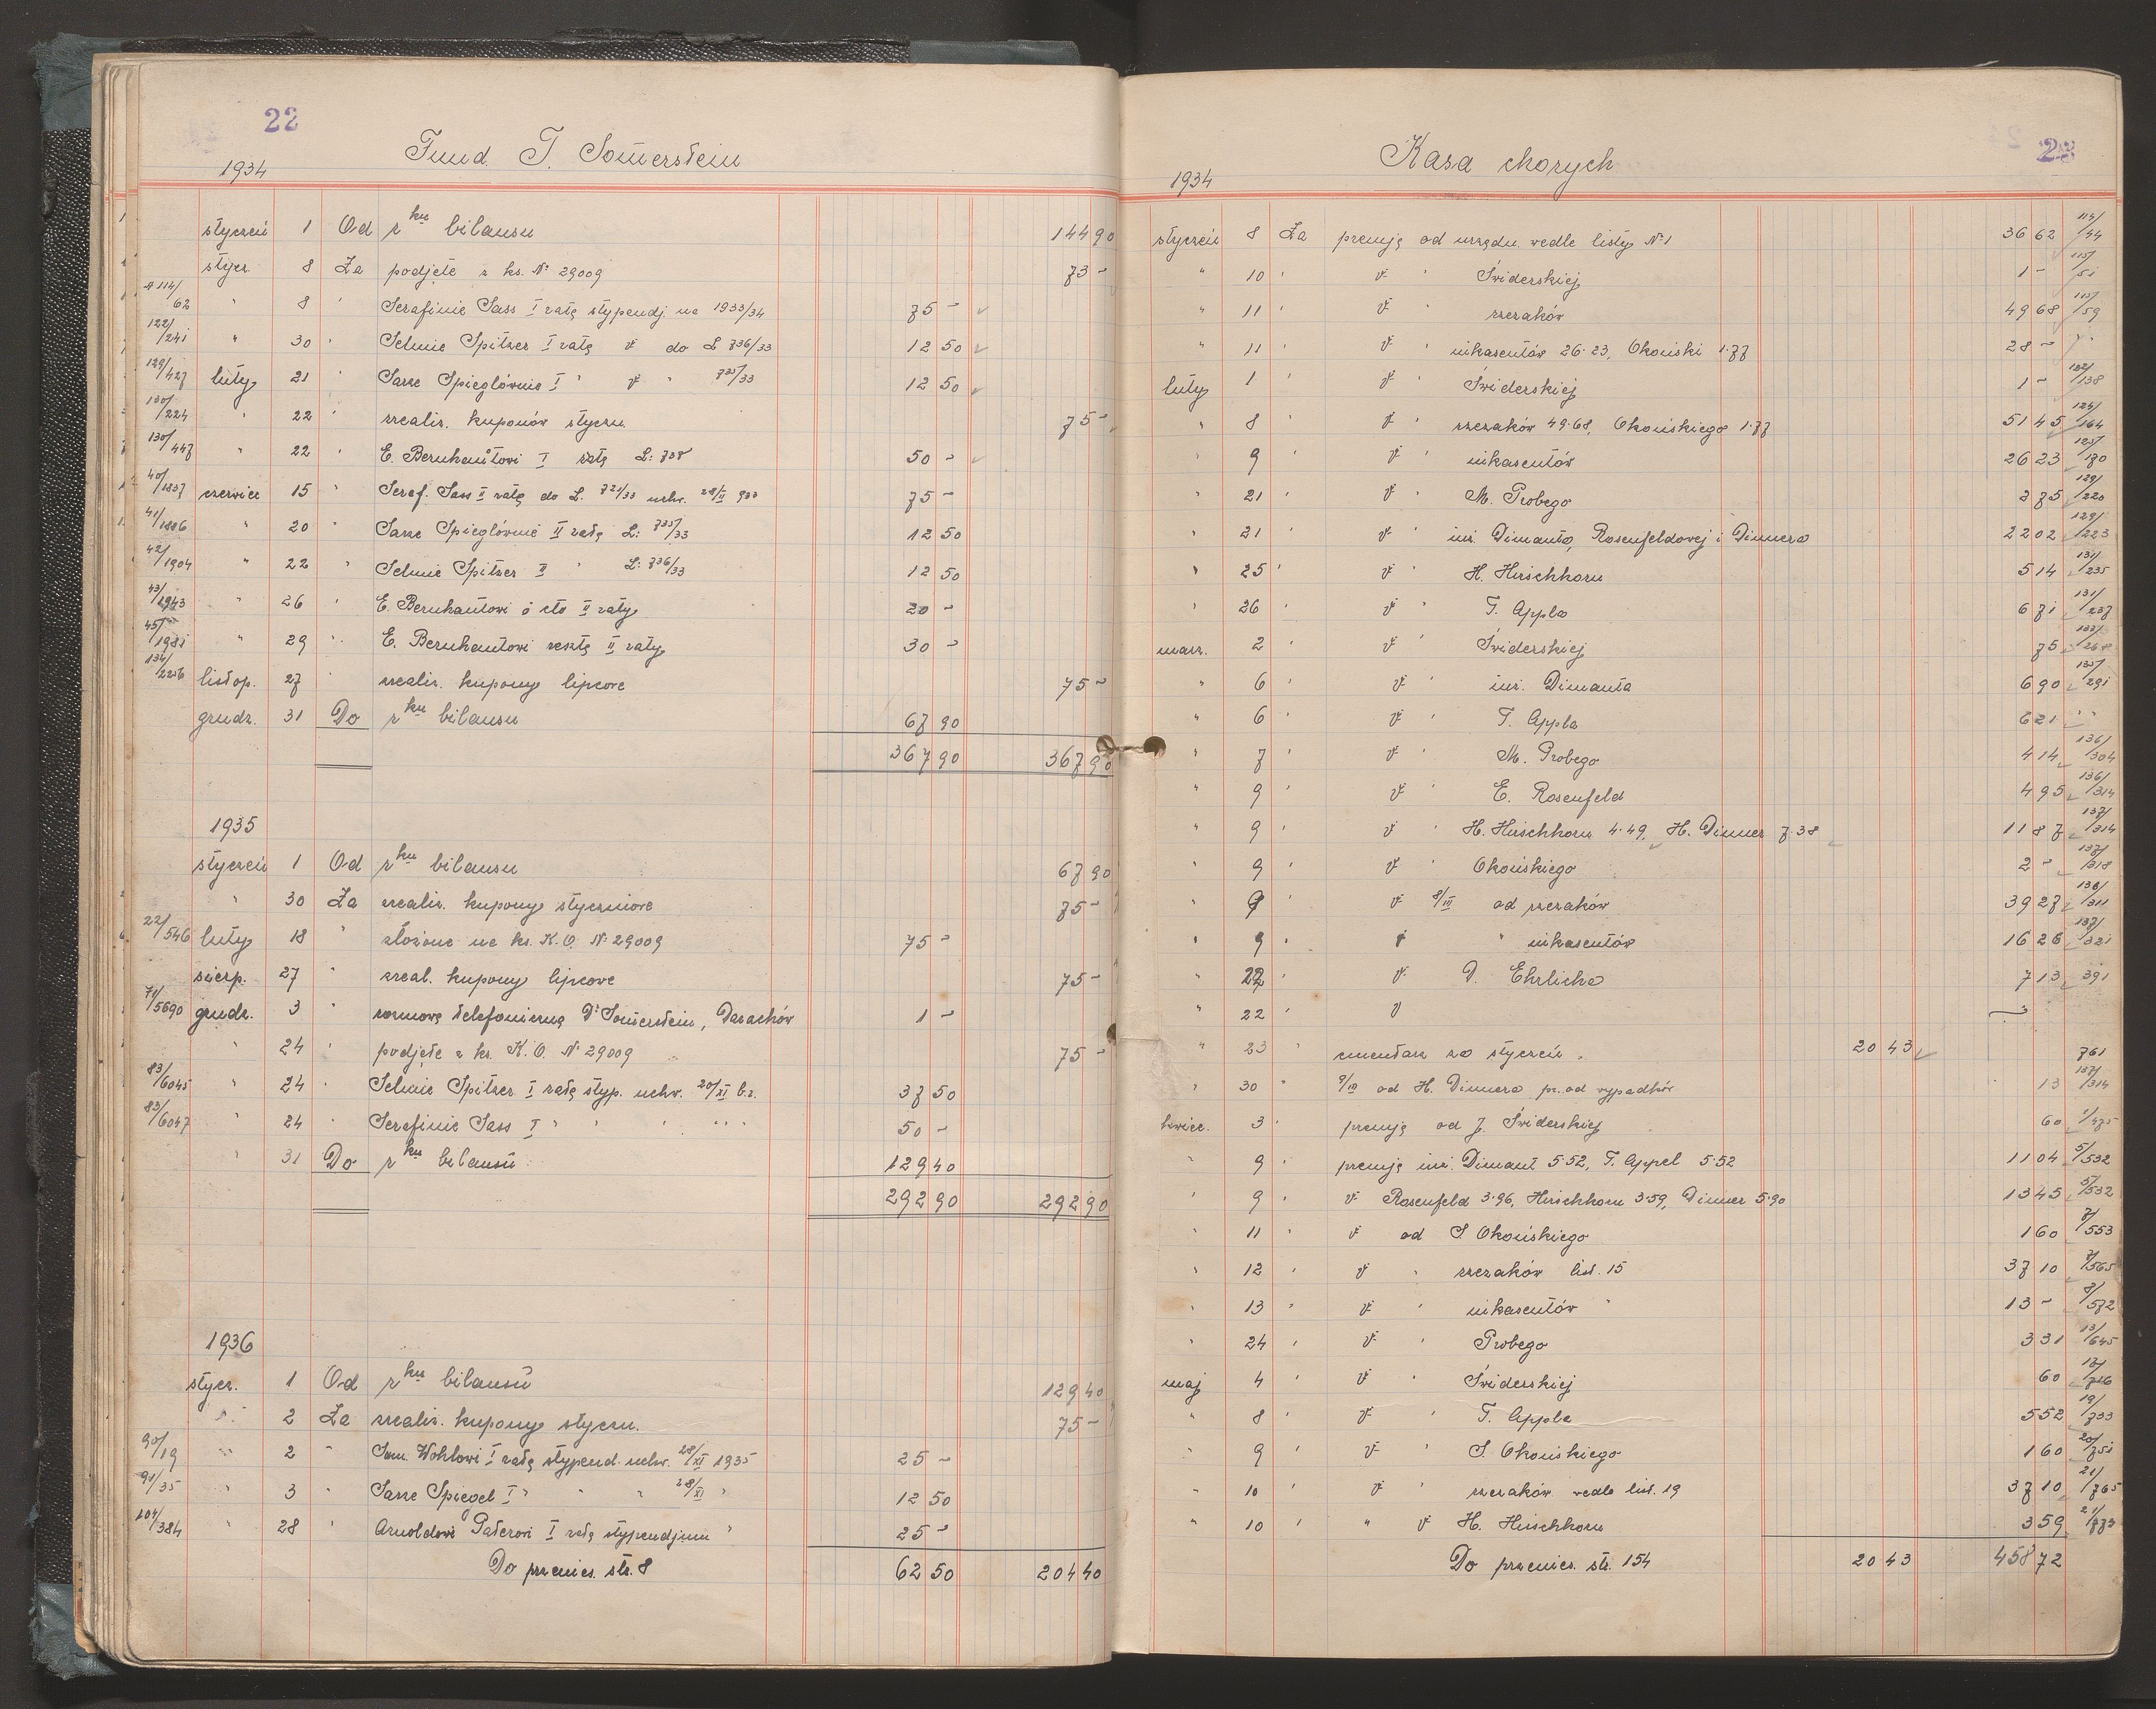 22
Fund. T. Somerstein
1934
styczeń 1 Od rku bilansu 144 90
stycz. 8 Za podjęte z ks. No 29009 73 -
114/62 " 8 " Serafinie Sass I ratę stypendj. na 1933/34 75 -
122/241 " 30 " Selmie Spitzer I ratę " do L 736/33 12 50
129/427 luty 21 " Sarze Spieglównie I " " " 735/33 12 50
130/224 " 22 " zrealiz. kuponów styczn. 75 -
130/447 " 22 " E. Bernhautowi I ratę L: 738 50 -
40/1837 czerwiec 15 " Seraf. Sass II ratę do L. 721/33 uchw. 28/II 933 75 -
41/1886 " 20 " Sarze Spieglównie II ratę L: 735/33 12 50
42/1904 " 22 " Selmie Spitzer II " L: 736/33 12 50
43/1943 " 26 " E. Bernhautowi á cto II raty 20 -
45/1981 " 29 " E. Bernhautowi resztę II raty 30 -
134/2256 listop. 27 " zrealiz. kupony lipcowe 75 -
grudz. 31 Do rku bilansu 67 90
367 90 367 90
1935
styczeń 1 Od rku bilansu 67 90
" 30 Za zrealiz. kupony styczniowe 75 -
22/546 luty 18 " złożone na ks. K.O. No 29009 75 -
sierp. 27 " zreal. kupony lipcowe 75 -
71/5690 grudz. 3 " rozmowę telefoniczną Dr Somerstein, Darachów 1 -
" 24 " podjęte z ks. K.O. No 29009 75 -
83/6045 " 24 " Selmie Spitzer I ratę styp. uchw. 20/XI b.r. 37 50
83/6047 " 24 " Serafinie Sass I " " " " " 50 -
" 31 Do rku bilansu 129 40
292 90 292 90
1936
stycz. 1 Od rku bilansu 129 40
" 2 Za zrealiz. kupony styczn. 75 -
90/19 " 2 " Sam. Wohlowi I ratę stypend. uchw. 28/XI 1935 25 -
91/35 " 3 " Sarze Spiegel I " " " 28/XI " 12 50
104/384 " 28 " Arnoldowi Paterowi I ratę stypendjum " 25 -
Do przenies. str. 8 62 50 204 40
23
Kasa chorych
1934
styczeń 8 Za premję od urzędn. wedle listy No 1 36 62 114/44
" 10 " " " Świderskiej 1 - 115/51
" 11 " " " rzezaków 49 68 115/59
" 11 " " " inkasentów 26.23, Okoński 1.77 28 - " "
luty 1 " " " Świderskiej 1 - 122/138
" 8 " " " rzezaków 49.68, Okońskiego 1.77 51 45 124/164
" 9 " " " inkasentów 26 23 125/170
" 21 " " " M. Probego 2 75 129/220
" 21 " " " inż. Dimanta, Rosenfeldowej i Dinnera 22 02 129/223
" 25 " " " H. Hirschhorn 5 14 131/235
" 26 " " " T. Appla 6 71 131/237
marz. 2 " " " Świderskiej 75 133/268
" 6 " " " inż. Dimanta 6 90 135/291
" 6 " " " T. Appla 6 21 " "
" 7 " " " M. Probego 4 14 136/304
" 9 " " " E. Rosenfeld 4 95 136/314
" 9 " " " H. Hirschhorn 4.49, H. Dinner 7.38 11 87 137/314
" 9 " " Okońskiego 2 - 137/318
" 9 " " 8/III od rzezaków 39 27 136/311
" 9 " " " inkasentów 16 26 137/321
" 22 " " D. Ehrlicha 7 13 391
" 22 " "
" 23 " cmentarz za styczeń. 20 43 761
" 30 " 9/III od H. Dinnera pr. od wypadków 13 137/314
kwiec. 3 " premję od J. Świderskiej 60 1/475
" 9 " premję inż. Dimant 5.52, T. Appel 5.52 11 04 5/532
" 9 " " Rosenfeld 3.96, Hirschhorn 3.59, Dinner 5.90 13 45 5/532
" 11 " " od S. Okońskiego 1 60 7/553
" 12 " " " rzezaków list. 15 37 10 7/565
" 13 " " " inkasentów " 13 - 8/572
" 24 " " " Probego 3 31 13/645
maj 4 " " " Świderskiej 60 17/716
" 8 " " " T. Appla 5 52 19/733
" 9 " " " S. Okońskiego 1 60 20/751
" 10 " " " rzezaków wedle list. 19 37 10 21/765
" 10 " " " H. Hirschhorn 3 59 21/773
Do przenies. str. 154 20 43 458 72